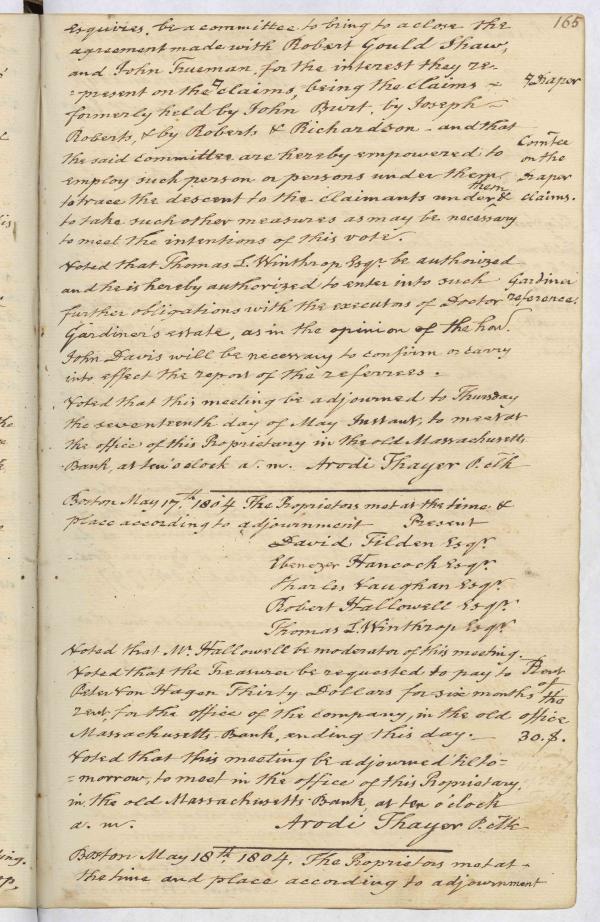 165
Esquires, be a committee to bring to a close the
agreement made with Robert Gould Shaw,
and John Trueman, for the interest they re-
=present on the claims, being the claims
Draper
formerly held by John Burt, by Joseph
Roberts, & by Roberts & Richardson - and that
the said committee are hereby empowered to
Comtee
on the
Draper
claims.
employ such person or persons under them
to trace the descent to the claimants under them &
to take such other measures as may be necessary
to meet the intentions of this vote.
Voted that Thomas L. Winthrop Esqr. be authorized
and he is hereby authorized to enter into such
Gardiner
reference.
further obligations with the executors of Doctor
Gardiner's estate, as in the opinion of the honl.
John Davis will be necessary to confirm or carry
into effect the report of the referrees.
Voted that this meeting be adjourned to Thursday
the seventeenth day of May Instant, to meet at
the office of this Proprietary in the old Massachusetts
Bank, at ten o'clock a. m. Arodi Thayer P. Clk
Boston May 17th. 1804 The Proprietors met at the time &
place according to adjournment Present
David Tilden Esqr.
Ebenezer Hancock Esqr.
Charles Vaughan Esqr.
Robert Hallowell Esqr.
Thomas L. Winthrop Esqr.
Voted that Mr. Hallowell be moderator of this meeting.
Voted that the Treasurer be requested to pay to
Rent
of
the
office
30.$.
Peter Von Hagen Thirty Dollars for six months
rent, for the office of the company, in the old
Massachusetts Bank, ending this day.
Voted that this meeting be adjourned till to=
=morrow, to meet in the office of this Proprietary,
in the old Massachusetts Bank, at ten o'clock
a. m. Arodi Thayer P. Clk
Boston May 18th 1804. The Proprietors met at
the time and place according to adjournment